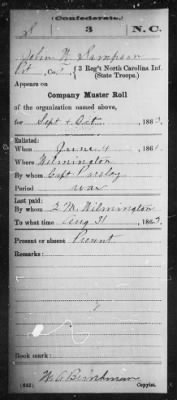 Confederate.
S 3 N.C.
John N. Sampson
Pvt, Co. I, 3 Reg't North Carolina Inf.
(State Troops.)
Appears on
Company Muster Roll
of the organization named above,
for Sept & Oct, 1863.
Enlisted:
When June 4, 1861.
Where Wilmington
By whom Capt Parsley
Period war
Last paid:
By whom Q. M. Wilmington
To what time Aug 31, 1863.
Present or absent Present
Remarks:
Book mark:
(642) Copyist.